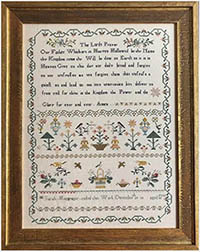 The Lord's Prayer
Our Father Which art in Heaven Hallowed be thy Name
thy Kingdom come thy Will be done on Earth as it is in
Heaven Give us this day our daily bread and forgive
us our trespasses as we forgive them that trespass
against us and lead us not into temptation but deliver us
from evil for thine is the Kingdom the Power and the
Glory for ever and ever Amen
Sarah ended this Work December